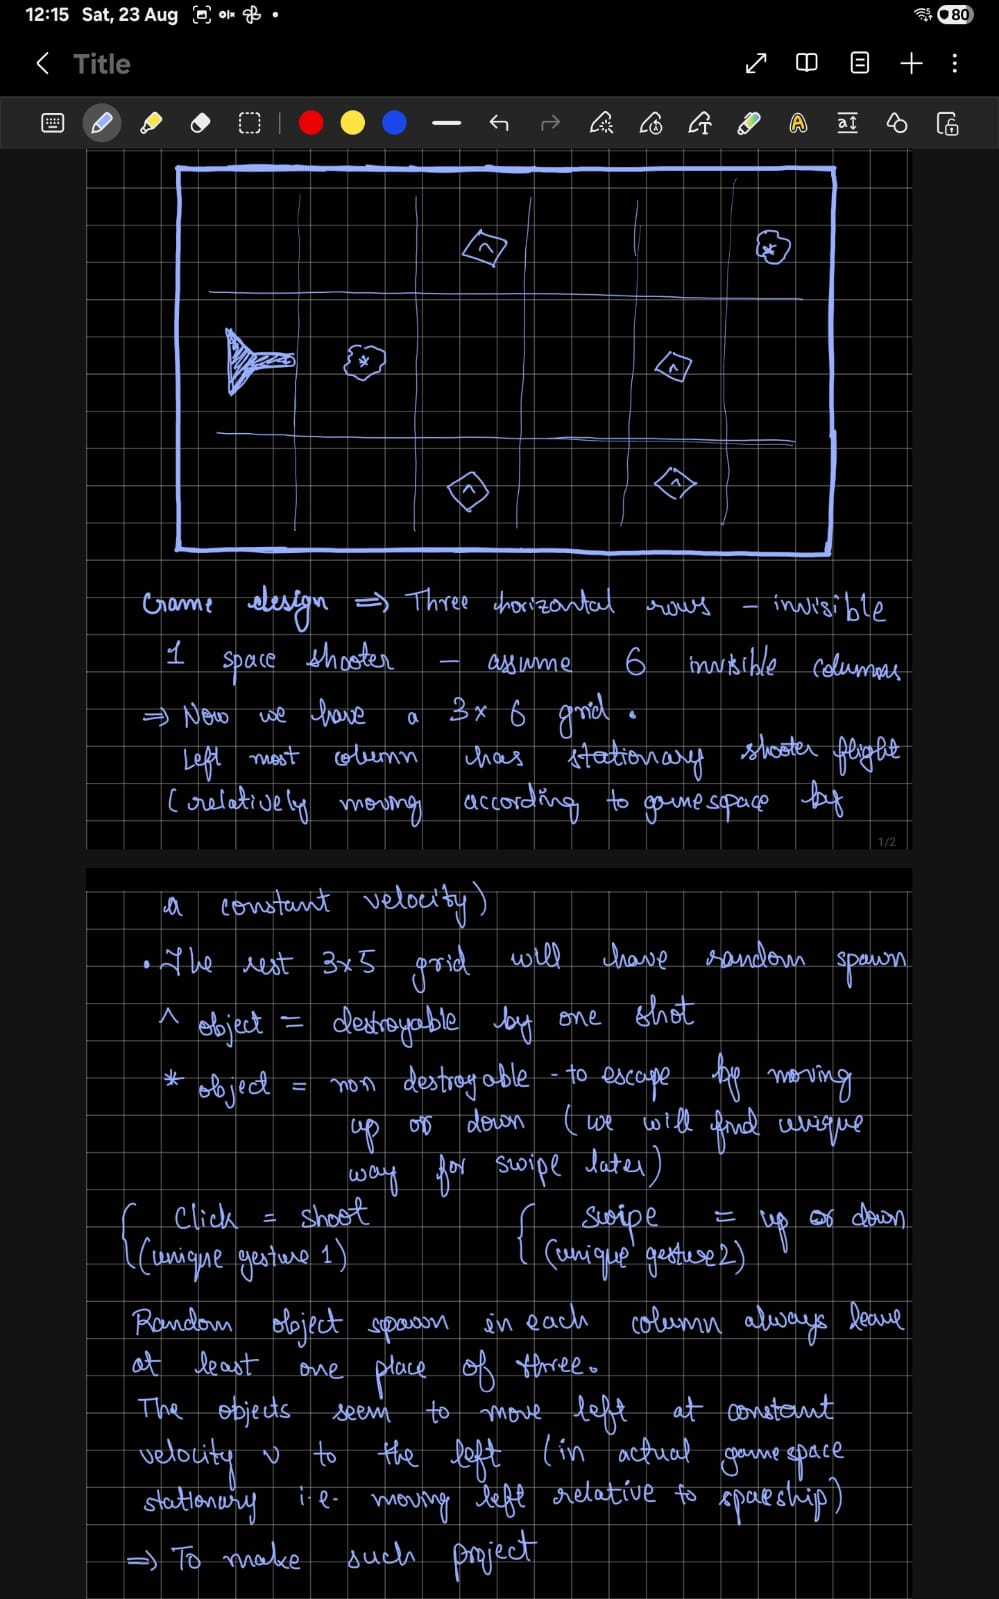 12:15 Sat, 23 Aug
80
Title
^
*
*
^
^
^
Game design ⇒ Three horizontal rows - invisible
1 space shooter - assume 6 invisible columns
⇒ Now we have a 3x6 grid.
Left most column has stationary shooter flight
(relatively moving according to gamespace by
1/2
a constant velocity)
• The rest 3x5 grid will have random spawn
^ object = destroyable by one shot
* object = non destroyable - to escape by moving
up or down (we will find unique
way for swipe later)
{ Click = shoot { swipe = up or down
(unique gesture 1) (unique gesture 2)
Random object spawn in each column always leave
at least one place of three.
The objects seem to move left at constant
velocity v to the left (in actual gamespace
stationary i.e. moving left relative to spaceship)
⇒ To make such project